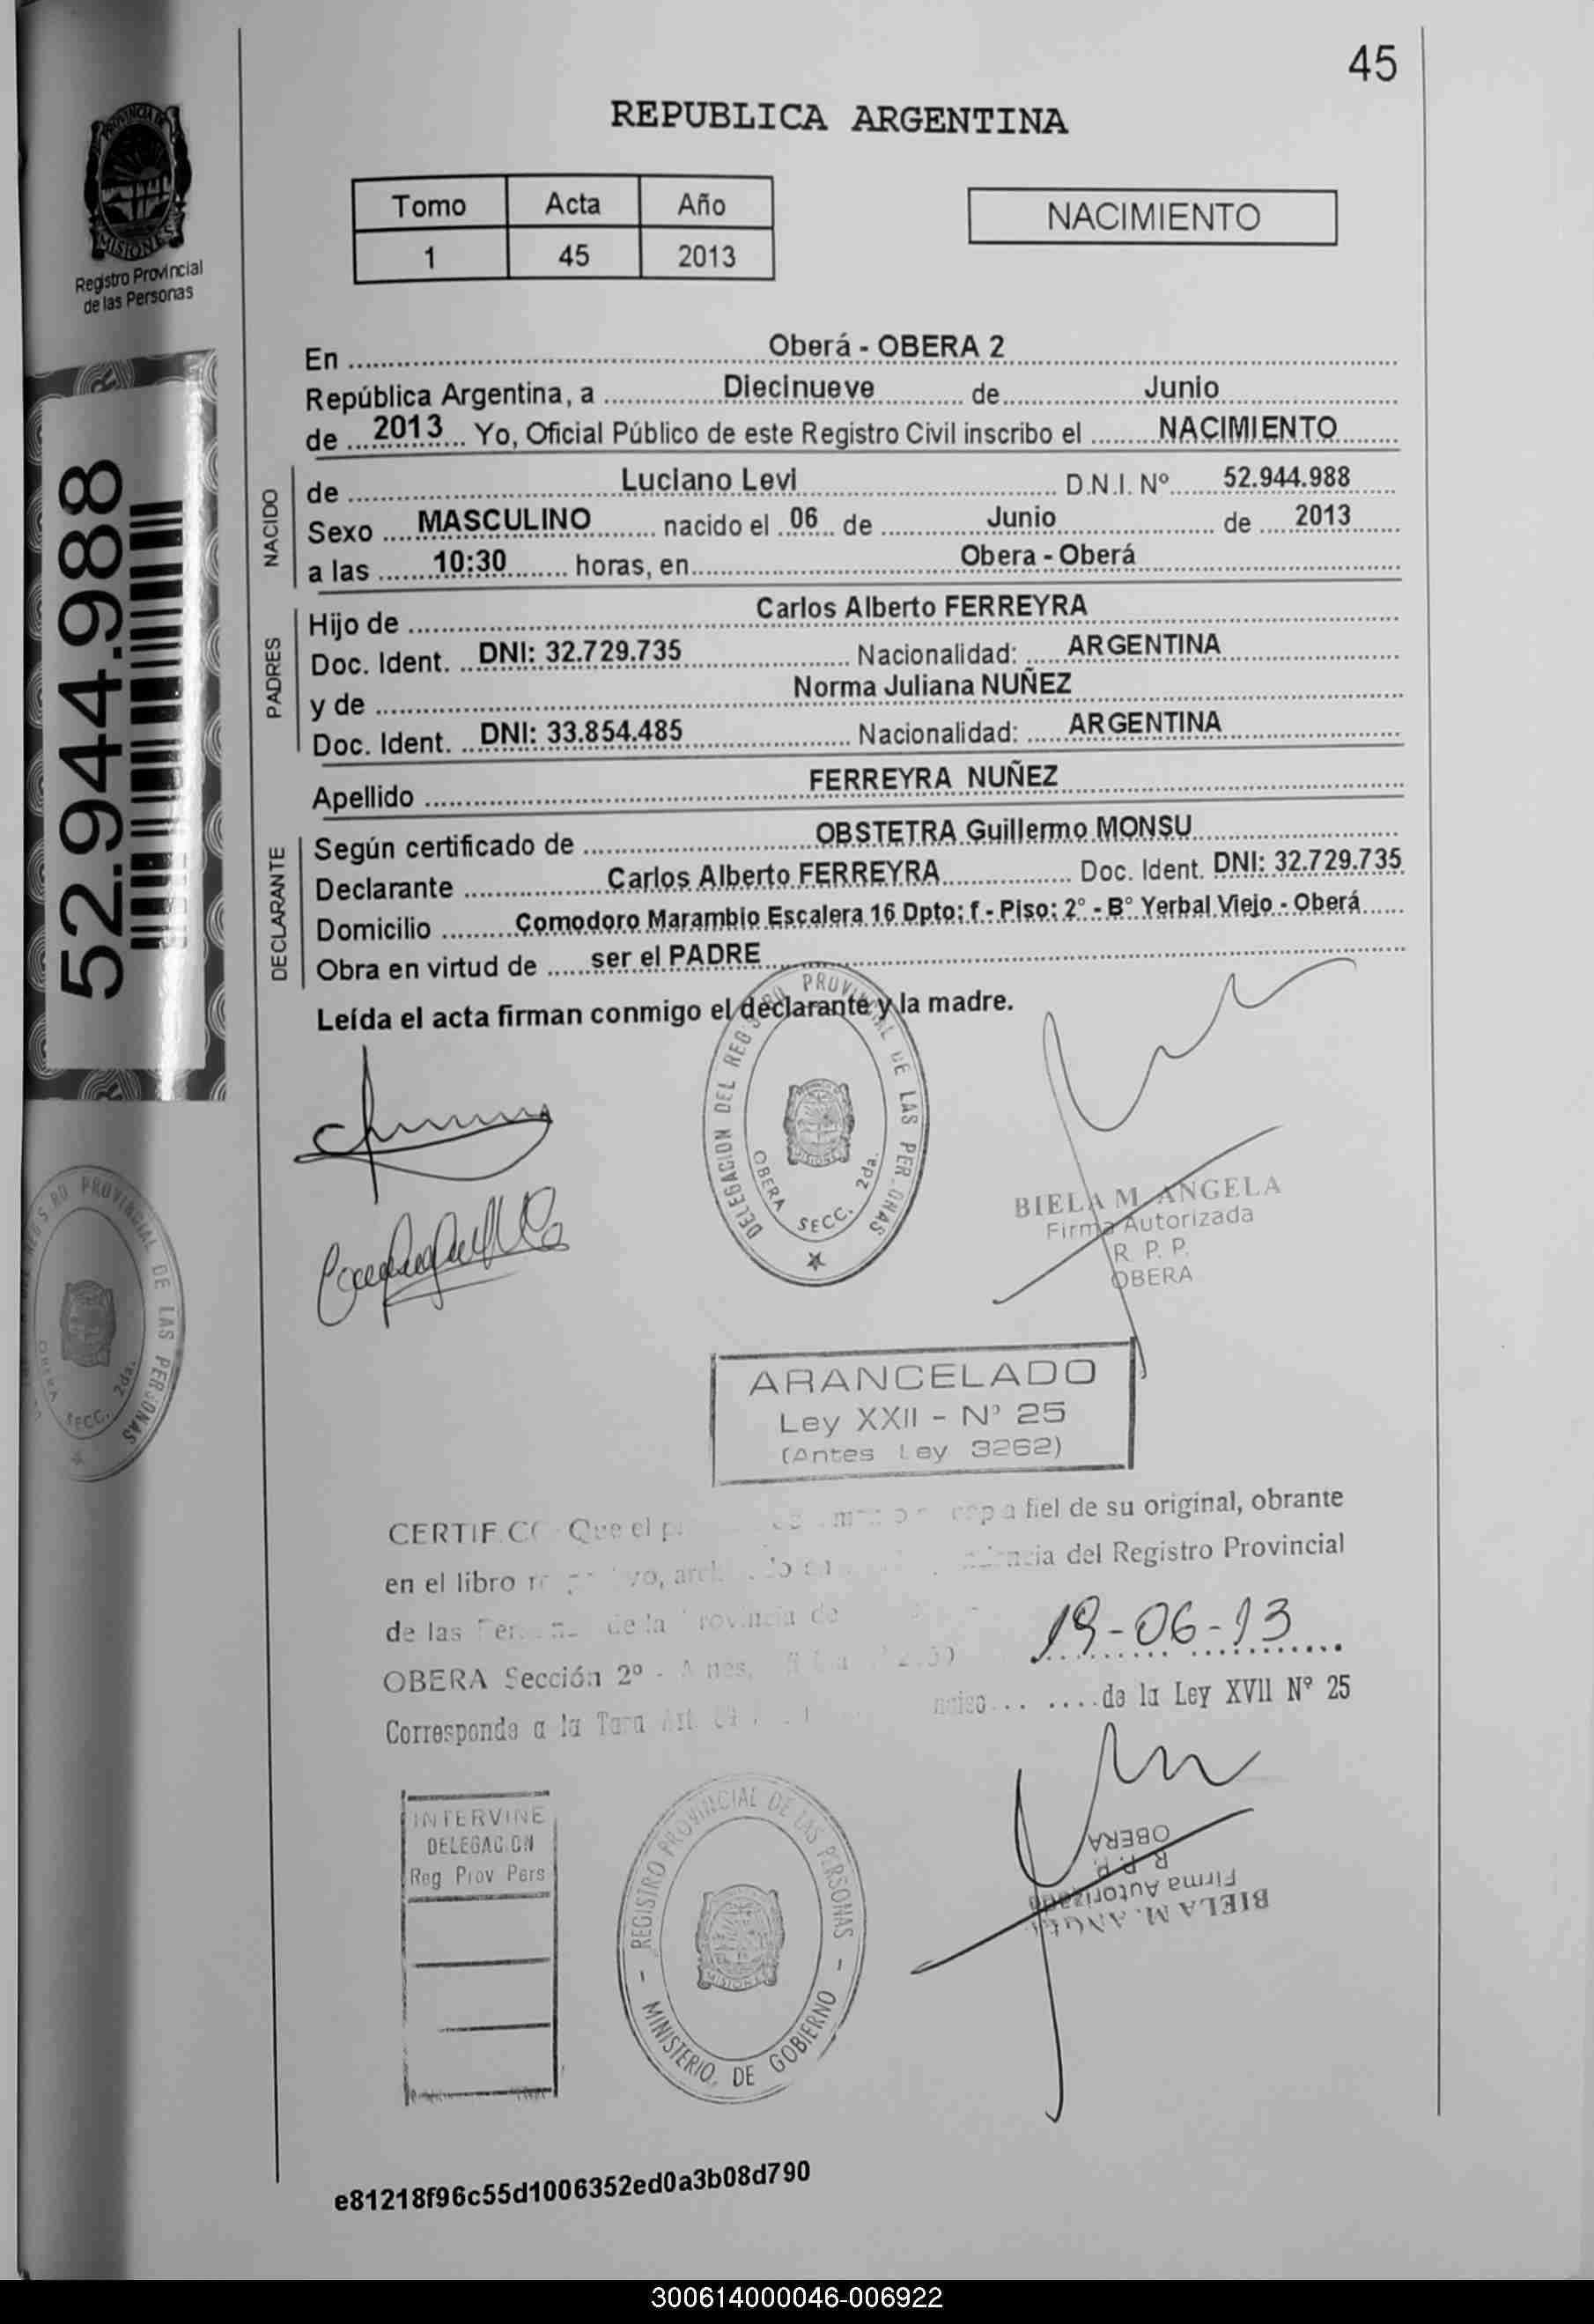 45
REPUBLICA ARGENTINA
PROVINCIA DE
MISIONES
Registro Provincial
de las Personas
Tomo Acta Año
1 45 2013
NACIMIENTO
52.944.988
En Oberá - OBERA 2
República Argentina, a Diecinueve de Junio
de 2013 Yo, Oficial Público de este Registro Civil inscribo el NACIMIENTO
NACIDO
de Luciano Levi D.N.I. Nº 52.944.988
Sexo MASCULINO nacido el 06 de Junio de 2013
a las 10:30 horas, en Obera - Oberá
PADRES
Hijo de Carlos Alberto FERREYRA
Doc. Ident. DNI: 32.729.735 Nacionalidad: ARGENTINA
y de Norma Juliana NUÑEZ
Doc. Ident. DNI: 33.854.485 Nacionalidad: ARGENTINA
Apellido FERREYRA NUÑEZ
DECLARANTE
Según certificado de OBSTETRA Guillermo MONSU
Declarante Carlos Alberto FERREYRA Doc. Ident. DNI: 32.729.735
Domicilio Comodoro Marambio Escalera 16 Dpto: f - Piso: 2° - B° Yerbal Viejo - Oberá
Obra en virtud de ser el PADRE
Leída el acta firman conmigo el declarante y la madre.
DELEGACION DEL REGISTRO PROVINCIAL DE LAS PERSONAS
OBERA SECC. 2da.
BIELA M. ANGELA
Firma Autorizada
R. P. P.
OBERA
PROVINCIAL DE LAS PERSONAS
OBERA SECC. 2da.
ARANCELADO
Ley XXII - Nº 25
(Antes Ley 3262)
CERTIFICO Que el fiel de su original, obrante
en el libro del Registro Provincial
de las de la Provincia de
OBERA Sección 2º - 19-06-13
Corresponde a la de la Ley XVII Nº 25
INTERVINE
DELEGACION
Reg Prov Pers
REGISTRO PROVINCIAL DE LAS PERSONAS
MISIONES
- MINISTERIO DE GOBIERNO -
BIELA M. ANGELA
Firma Autorizada
R. P. P.
OBERA
e81218f96c55d1006352ed0a3b08d790
300614000046-006922